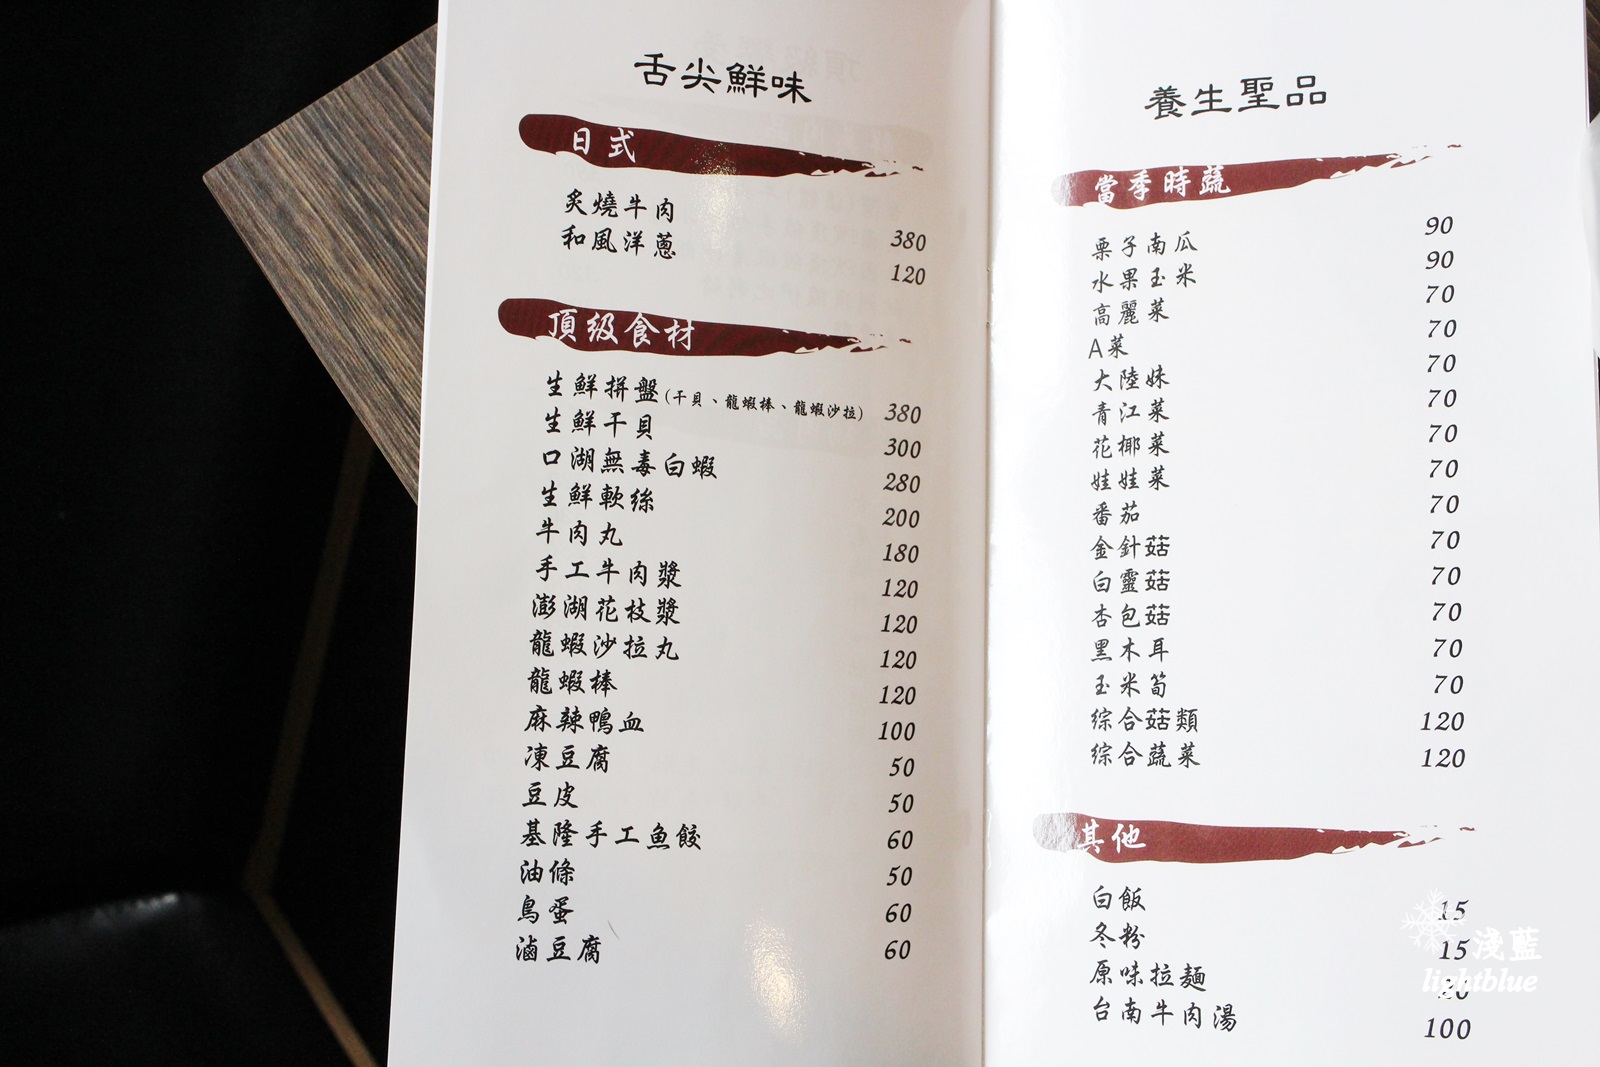 舌尖鮮味
日式
炙燒牛肉 380
和風洋蔥 120
頂級食材
生鮮拼盤(干貝、龍蝦棒、龍蝦沙拉) 380
生鮮干貝 300
口湖無毒白蝦 280
生鮮軟絲 200
牛肉丸 180
手工牛肉漿 120
澎湖花枝漿 120
龍蝦沙拉丸 120
龍蝦棒 120
麻辣鴨血 100
凍豆腐 50
豆皮 50
基隆手工魚餃 60
油條 50
鳥蛋 60
滷豆腐 60
養生聖品
當季時蔬
栗子南瓜 90
水果玉米 90
高麗菜 70
A菜 70
大陸妹 70
青江菜 70
花椰菜 70
娃娃菜 70
番茄 70
金針菇 70
白靈菇 70
杏包菇 70
黑木耳 70
玉米筍 70
綜合菇類 120
綜合蔬菜 120
其他
白飯 15
冬粉 15
原味拉麵
台南牛肉湯 100
淺藍
lightblue